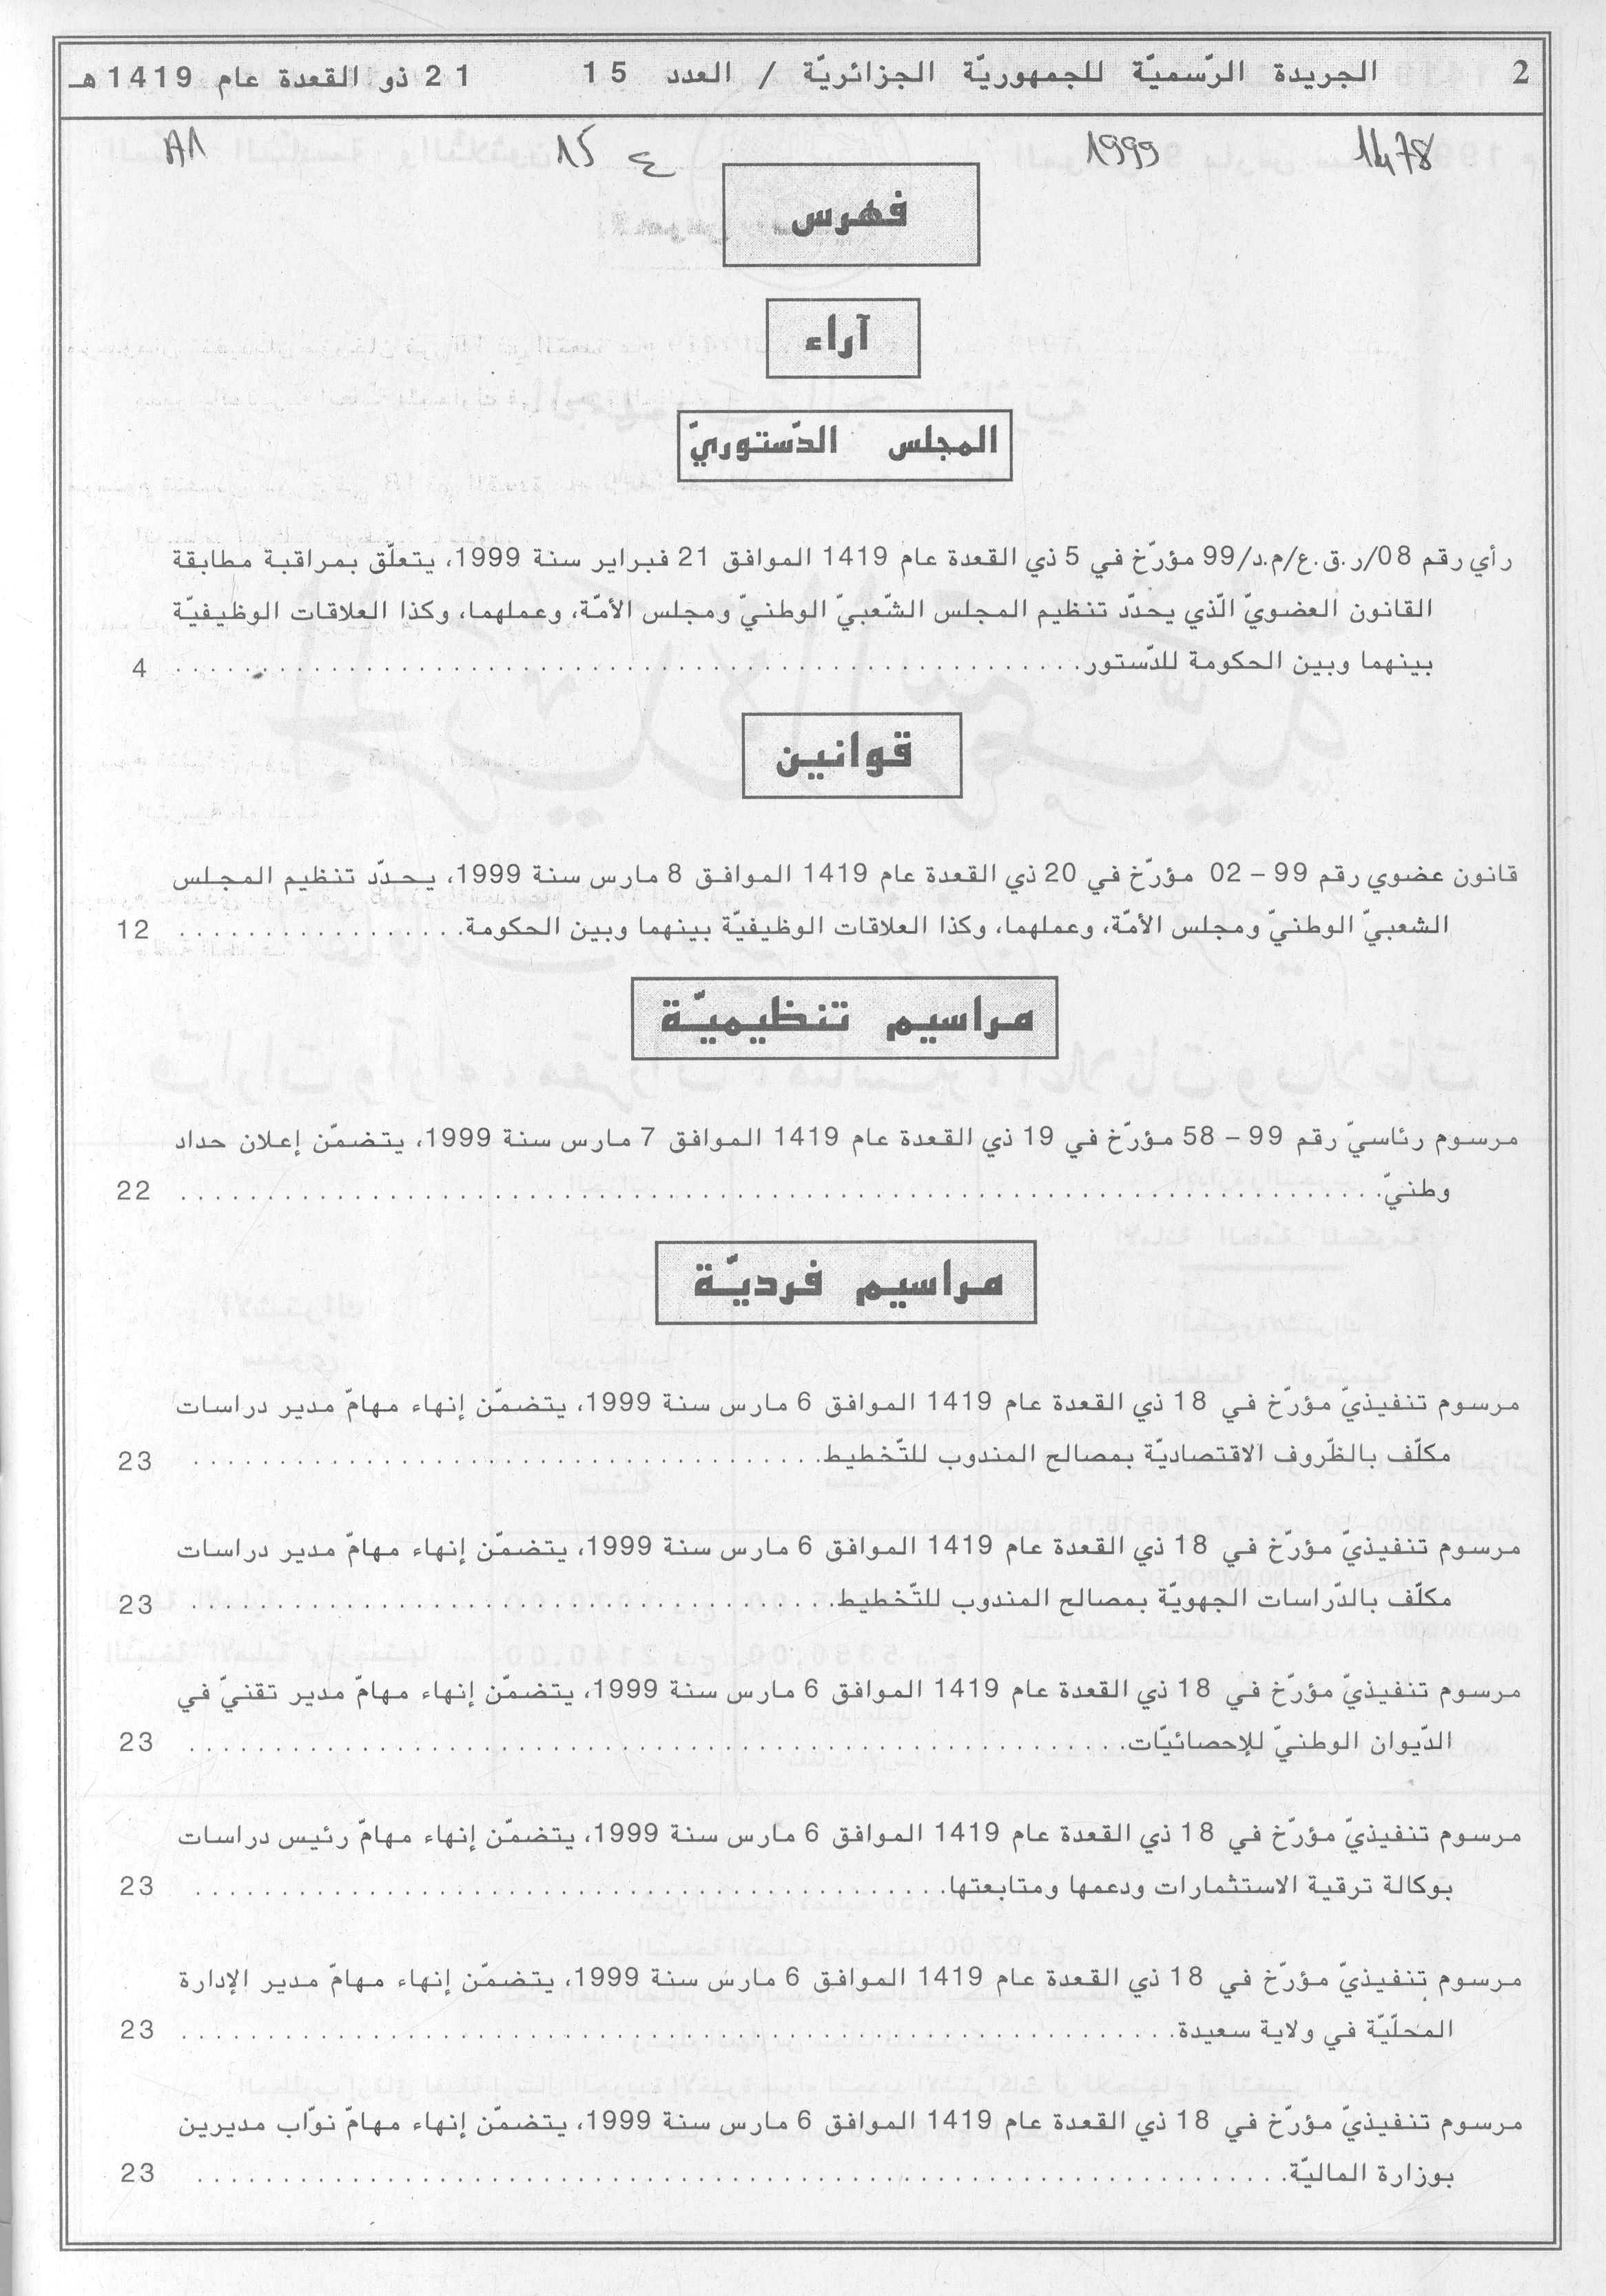 2 الجريدة الرّسميّة للجمهوريّة الجزائريّة / العدد 15 21 ذو القعدة عام 1419 هـ
1478 1999 ع 15 A1
فهرس
آراء
المجلس الدّستوريّ
رأي رقم 08/ر.ق.ع/م.د/99 مؤرّخ في 5 ذي القعدة عام 1419 الموافق 21 فبراير سنة 1999، يتعلّق بمراقبة مطابقة
القانون العضويّ الّذي يحدّد تنظيم المجلس الشّعبيّ الوطنيّ ومجلس الأمّة، وعملهما، وكذا العلاقات الوظيفيّة
بينهما وبين الحكومة للدّستور. . . . . . . . . . . . . . . . . . . . 4
قوانين
قانون عضوي رقم 99 – 02 مؤرّخ في 20 ذي القعدة عام 1419 الموافق 8 مارس سنة 1999، يحدّد تنظيم المجلس
الشعبيّ الوطنيّ ومجلس الأمّة، وعملهما، وكذا العلاقات الوظيفيّة بينهما وبين الحكومة. . . . . . . . . . 12
مراسيم تنظيميّة
مرسوم رئاسيّ رقم 99 – 58 مؤرّخ في 19 ذي القعدة عام 1419 الموافق 7 مارس سنة 1999، يتضمّن إعلان حداد
وطنيّ. . . . . . . . . . . . . . . . . . . . 22
مراسيم فرديّة
مرسوم تنفيذيّ مؤرّخ في 18 ذي القعدة عام 1419 الموافق 6 مارس سنة 1999، يتضمّن إنهاء مهامّ مدير دراسات
مكلّف بالظّروف الاقتصاديّة بمصالح المندوب للتّخطيط. . . . . . . . . . . . . . . . . . . . 23
مرسوم تنفيذيّ مؤرّخ في 18 ذي القعدة عام 1419 الموافق 6 مارس سنة 1999، يتضمّن إنهاء مهامّ مدير دراسات
مكلّف بالدّراسات الجهويّة بمصالح المندوب للتّخطيط. . . . . . . . . . . . . . . . . . . . 23
مرسوم تنفيذيّ مؤرّخ في 18 ذي القعدة عام 1419 الموافق 6 مارس سنة 1999، يتضمّن إنهاء مهامّ مدير تقنيّ في
الدّيوان الوطنيّ للإحصائيّات. . . . . . . . . . . . . . . . . . . . 23
مرسوم تنفيذيّ مؤرّخ في 18 ذي القعدة عام 1419 الموافق 6 مارس سنة 1999، يتضمّن إنهاء مهامّ رئيس دراسات
بوكالة ترقية الاستثمارات ودعمها ومتابعتها. . . . . . . . . . . . . . . . . . . . 23
مرسوم تنفيذيّ مؤرّخ في 18 ذي القعدة عام 1419 الموافق 6 مارس سنة 1999، يتضمّن إنهاء مهامّ مدير الإدارة
المحلّيّة في ولاية سعيدة. . . . . . . . . . . . . . . . . . . . 23
مرسوم تنفيذيّ مؤرّخ في 18 ذي القعدة عام 1419 الموافق 6 مارس سنة 1999، يتضمّن إنهاء مهامّ نوّاب مديرين
بوزارة الماليّة. . . . . . . . . . . . . . . . . . . . 23